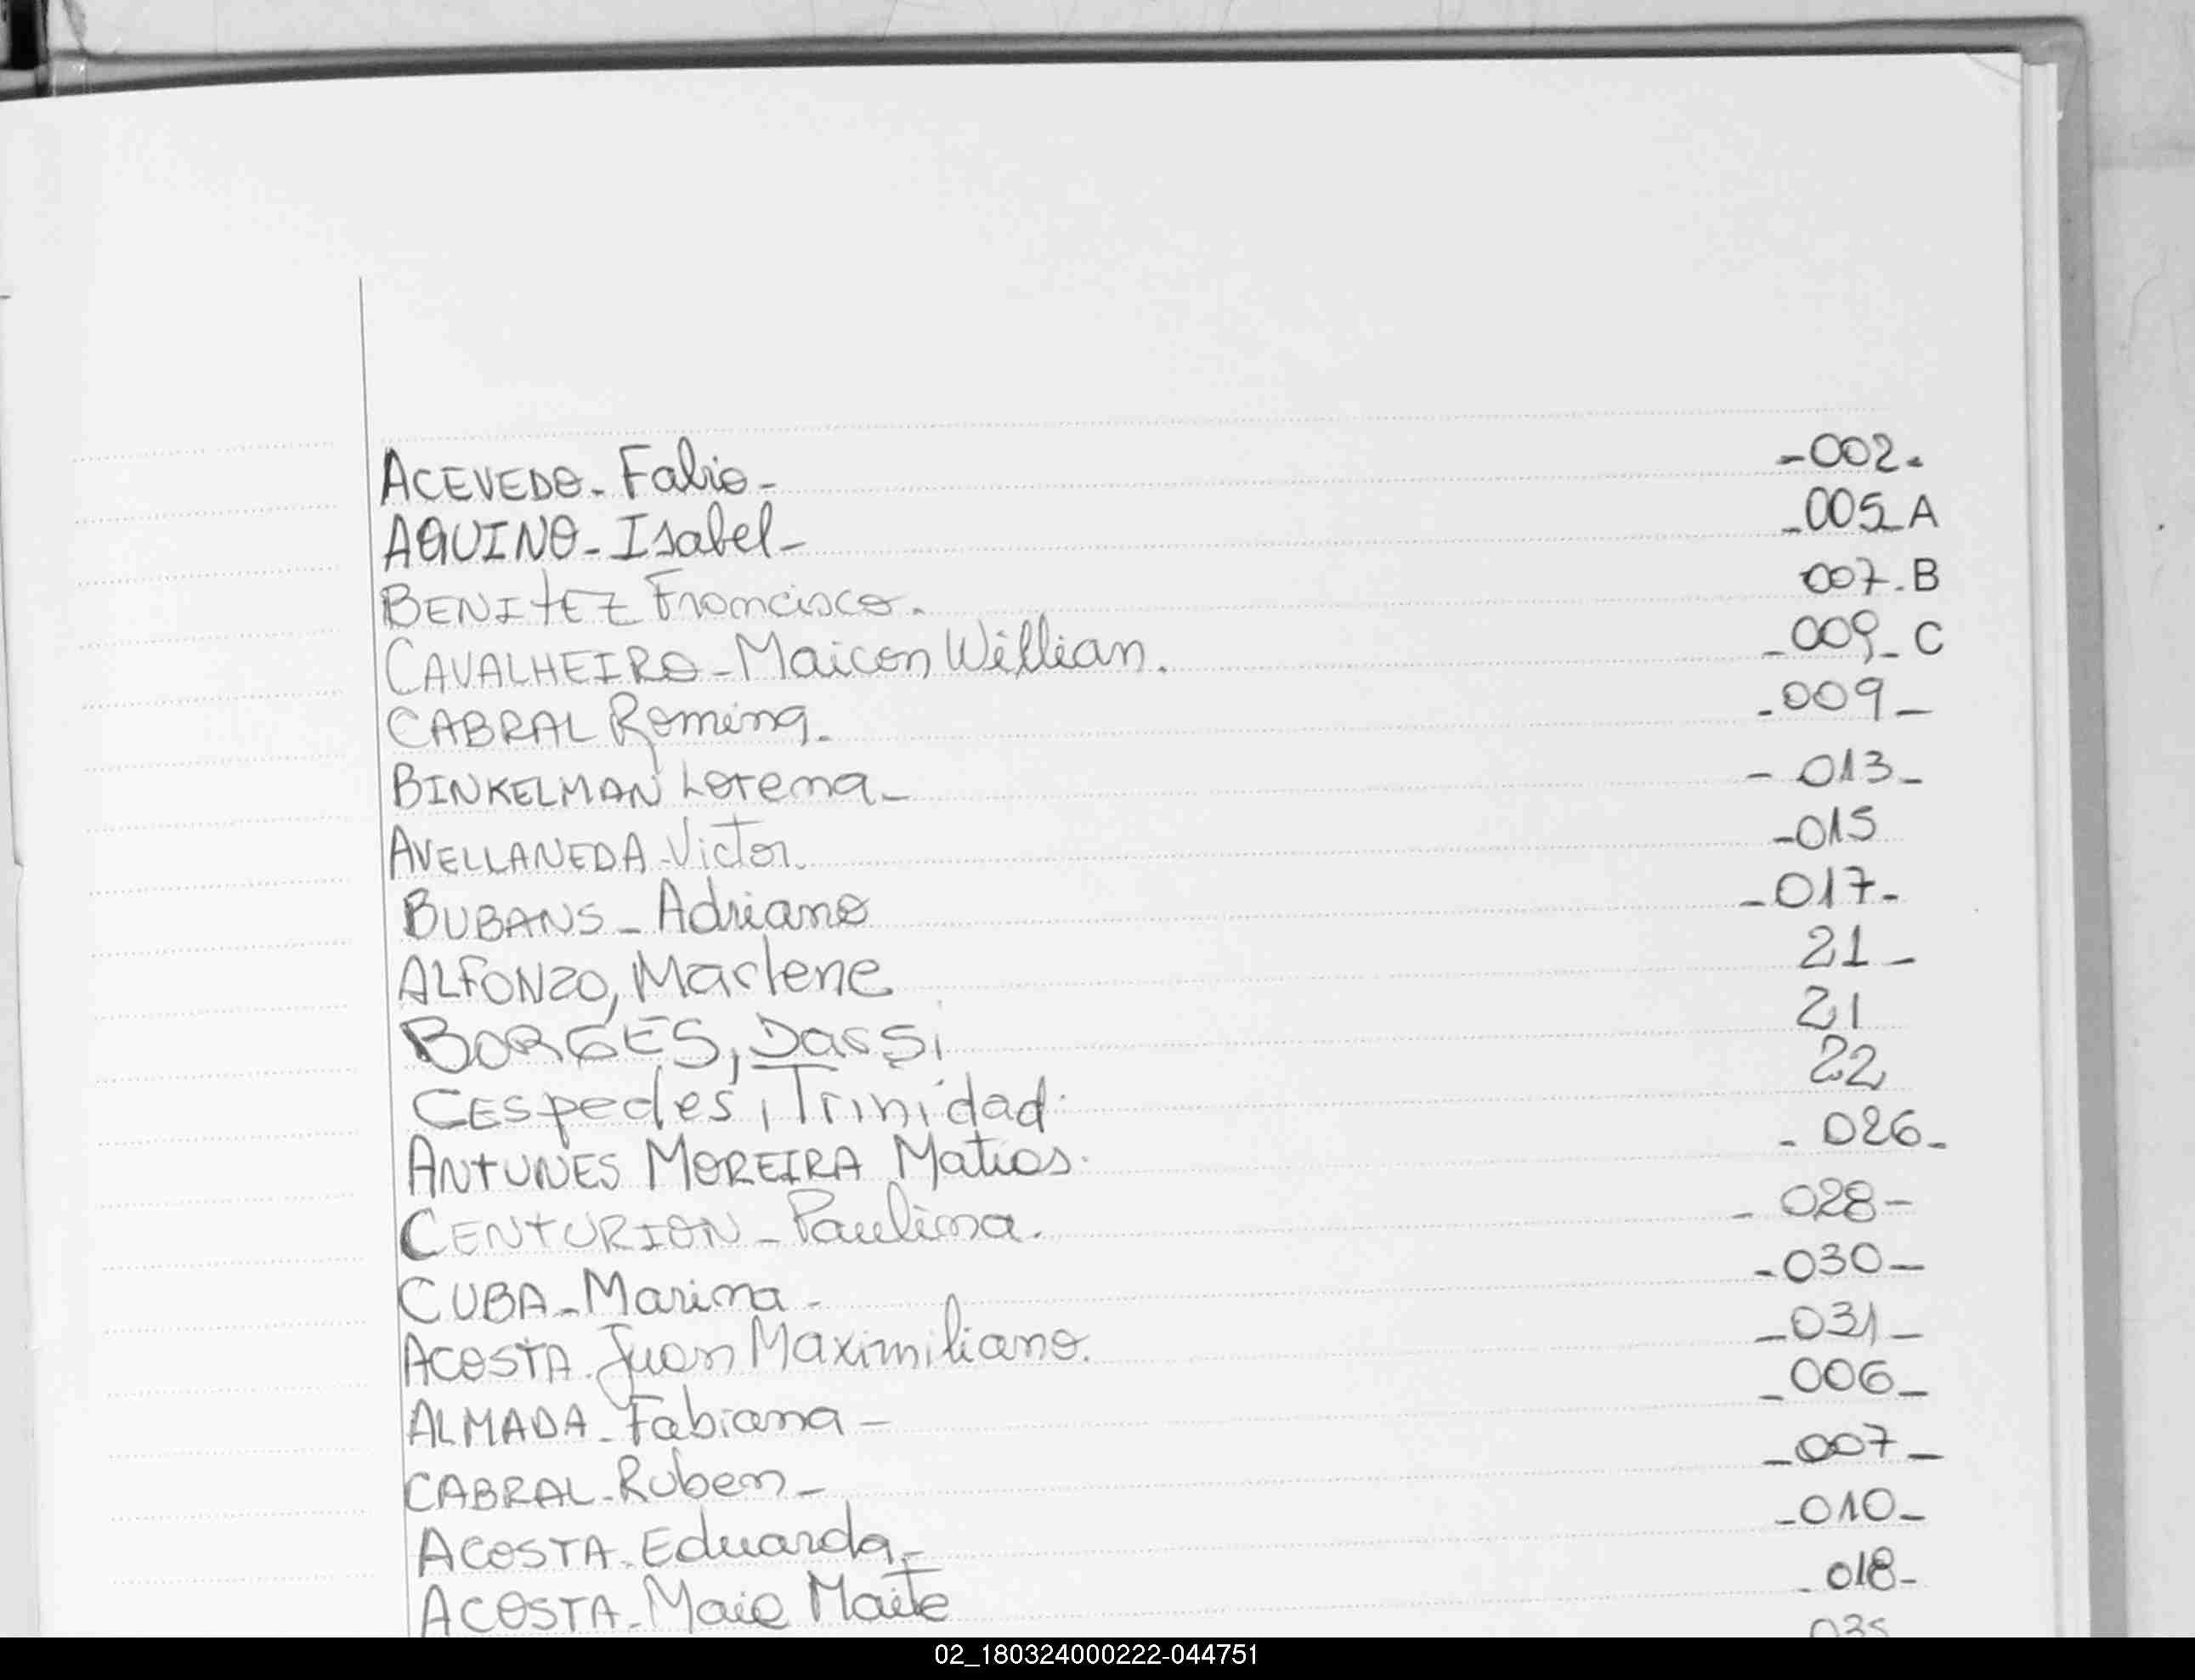 ACEVEDO - Fabio - - 002 -
AQUINO - Isabel - - 005 _ A
BENITEZ Francisco. 007 . B
CAVALHEIRO - Maicon Willian. - 009 _ C
CABRAL Romina. - 009 -
BINKELMAN Lorena - - 013 -
AVELLANEDA - Victor. - 015
BUBANS - Adriano - 017 -
ALFONZO, Marlene 21 -
BORGES, Dassi 21
CESpedes, Trinidad. 22
ANTUNES MOREIRA Matias. - 026 -
CENTURION - Paulina. - 028 -
CUBA - Marina - - 030 -
ACOSTA. Juan Maximiliano. - 031 -
ALMADA - Fabiana - - 006 -
CABRAL - Ruben - - 007 -
ACOSTA - Eduarda - - 010 -
ACOSTA - Maite - 018 -
02_180324000222-044751